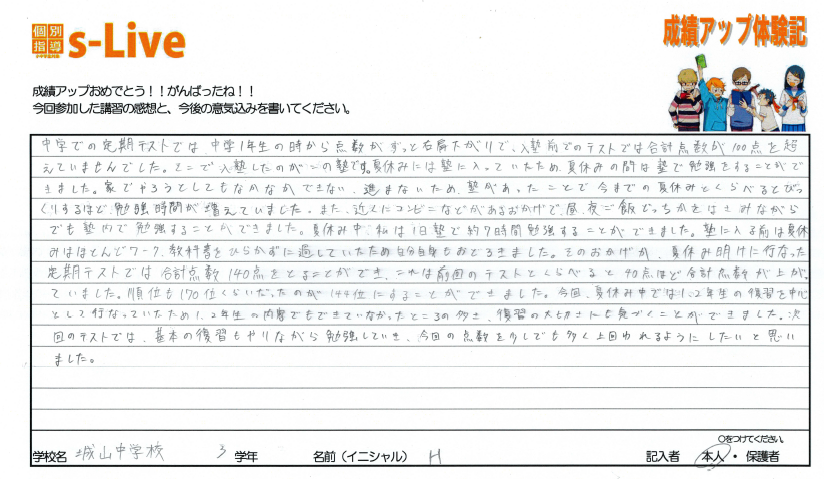 個別
指導
s-Live
小中学生対象
成績アップ体験記
成績アップおめでとう！！がんばったね！！
今回参加した講習の感想と、今後の意気込みを書いてください。
中学での定期テストでは、中学1年生の時から点数がずっと右肩下がりで、入塾前でのテストでは合計点数が100点を超
えていませんでした。そこで入塾したのがこの塾です。夏休みには塾に入っていたため、夏休みの間は塾で勉強をすることがで
きました。家でやろうとしてもなかなかできない、進まないため、塾があったことで今までの夏休みとくらべるとびっ
くりするほど、勉強時間が増えていました。また、近くにコンビニなどがあるおかげで、昼、夜ご飯どっちかをはさみながら
でも塾内で勉強することができました。夏休み中、私は1日塾で約7時間勉強することができました。塾に入る前は夏休
みはほとんどワーク、教科書をひらかずに過していたため自分自身もおどろきました。そのおかげか、夏休み明けに行なった
定期テストでは合計点数140点をとることができ、これは前回のテストとくらべると40点ほど合計点数が上がっ
ていました。順位も170位くらいだったのが144位にすることができました。今回、夏休み中では1、2年生の復習を中心
として行なっていたため1、2年生の内容でもできていなかったところの多さ、復習の大切さにも気づくことができました。次
回のテストでは、基本の復習もやりながら勉強していき、今回の点数を少しでも多く上回われるようにしたいと思い
ました。
〇をつけてください。
学校名 城山中学校 3 学年 名前（イニシャル） H 記入者 本人・保護者